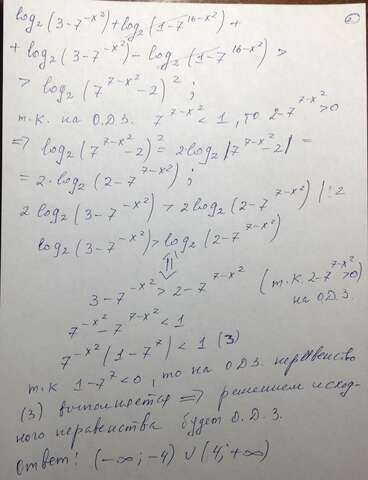 log₂(3-7^(-x²)) + log₂(1-7^(16-x²)) +
+ log₂(3-7^(-x²)) - log₂(1-7^(16-x²)) >
> log₂(7^(7-x²) - 2)² ;
т.к. на О.Д.З. 7^(7-x²) < 1, то 2-7^(7-x²) > 0
=> log₂(7^(7-x²) - 2)² = 2·log₂|7^(7-x²) - 2| =
= 2·log₂(2-7^(7-x²)) ;
2 log₂(3-7^(-x²)) > 2 log₂(2-7^(7-x²)) |:2
log₂(3-7^(-x²)) > log₂(2-7^(7-x²))
⇓
3-7^(-x²) > 2-7^(7-x²) (т.к. 2-7^(7-x²) > 0
на О.Д.З.)
7^(-x²) - 7^(7-x²) < 1
7^(-x²)(1-7⁷) < 1 (3)
т.к 1-7⁷ < 0, то на О.Д.З. неравенство
(3) выполняется => решением исход-
ного неравенства будет О.Д.З.
Ответ: (-∞; -4) ∪ (4; +∞)